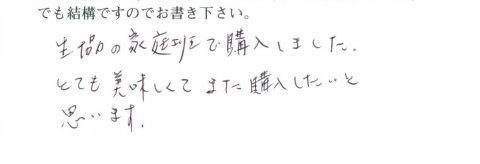 でも結構ですのでお書き下さい。
生協の家庭班で購入しました.
とても美味しくてまた購入したいと
思います.